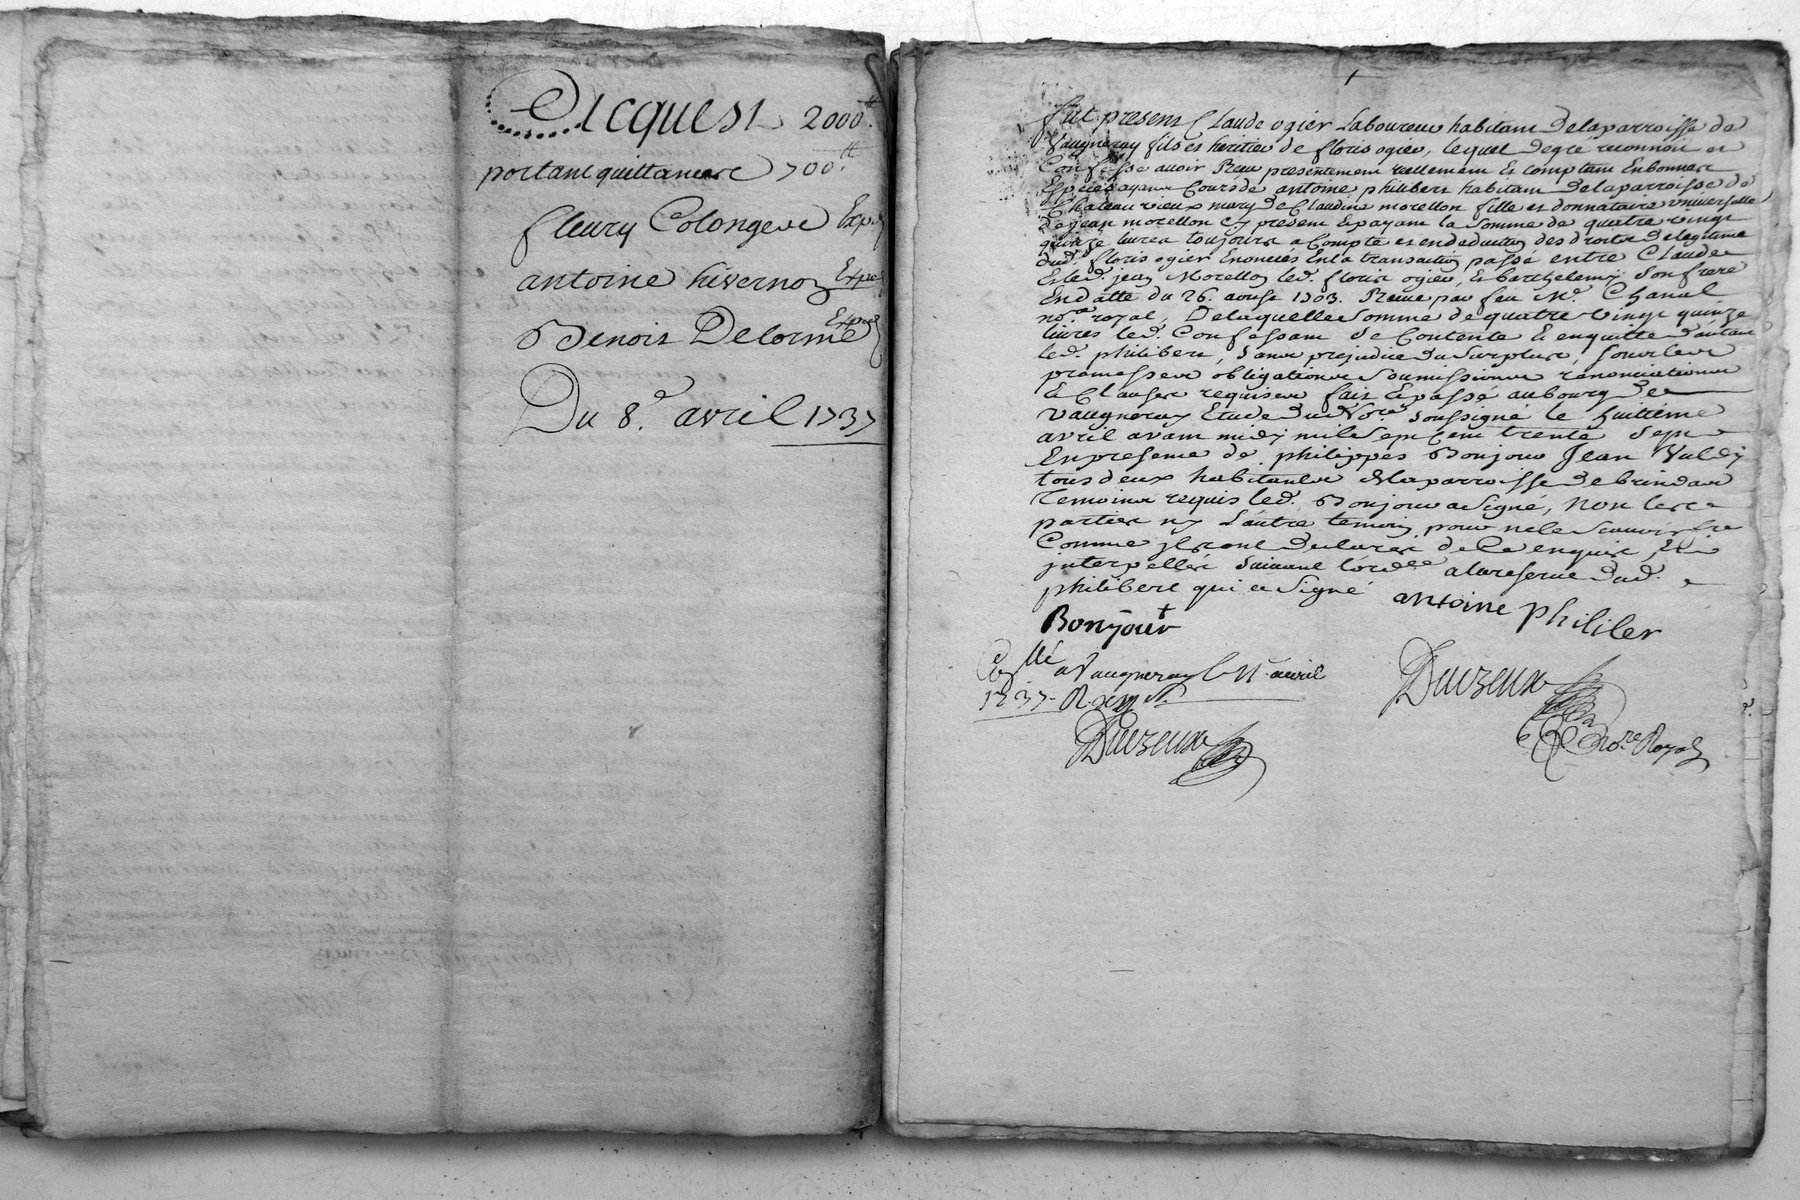 Acquest 2000ᵗᵗ
portant quittance de 700ᵗᵗ
fleury Colonge Exp.
antoine hivernon Exped
Benoit Delorme Exped
Du 8.e avril 1737
fut present Claude ogier Laboureur habitant de la parroisse de
Vaugneray fils et heritier de floris ogier, lequel de gré reconnoit et
Confesse avoir Reçu presentement reellement et comptant En bonnes
Especes ayant Cours de antoine philibert habitant de la parroisse de
Chateau vieux mary de Claudine morellon fille et donnataire universelle
de jean morellon cy present Et payant la somme de quatre vingt
quinze livres toujours a Compte et en deduction des droits de legitime
dud. floris ogier Enoncés En la transaction passé entre Claude
Et led. jean Morellon led. floris ogier, et barthelemy son frere
En datte du 26. aoust 1703. Reçue par feu Me. Chanal
nore. royal, De laquelle somme de quatre vingt quinze
livres led. Confessant se Contente et en quitte d'autant
led. philibert, sans prejudice du surplus, sous les
promesses obligations soumissions renonciations
Et Clauses requises fait et passé au bourg de
Vaugneray Etude du Nore soussigné le huitième
avril avant midy mil sept Cent trente sept
En presence de philippes Bonjour Jean
tous deux habitants de la parroisse de brindas
Temoins requis led. Bonjour a signé, non les
parties ny l'autre temoin pour ne le scavoir f.re
Comme ils ont declaré de ce enquis et
interpellés suivant l'ord.ce a la reserve dud.
philibert qui a signé antoine Philiber
Bonjour
C.llé a Vaugneray le 11e avril
1737. R.
Duizeux Duizeux
nore. Royal